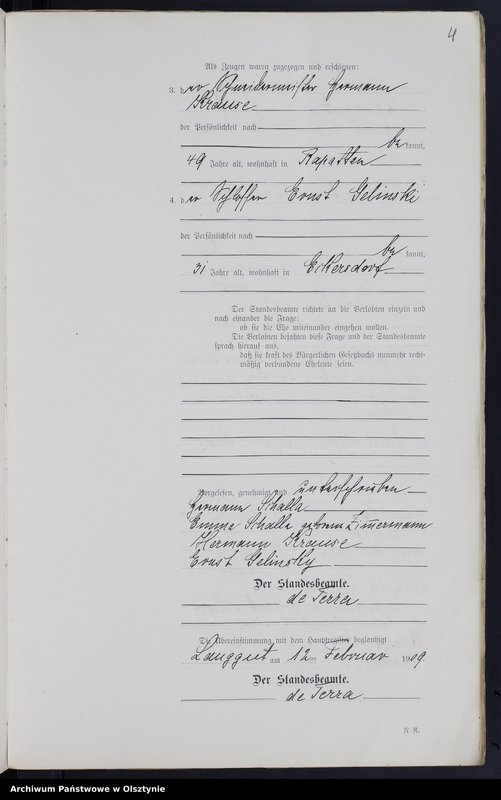 4
Als Zeugen waren zugezogen und erschienen:
3. der Schneidermeister Hermann
Krause
der Persönlichkeit nach
bekannt,
49 Jahre alt, wohnhaft in Rapatten
4. der Schlosser Ernst Gelinski
der Persönlichkeit nach
bekannt,
31 Jahre alt, wohnhaft in Eckersdorf
Der Standesbeamte richtete an die Verlobten einzeln und
nach einander die Frage:
ob sie die Ehe miteinander eingehen wollen.
Die Verlobten bejahten diese Frage und der Standesbeamte
sprach hierauf aus,
daß sie kraft des Bürgerlichen Gesetzbuchs nunmehr recht-
mäßig verbundene Eheleute seien.
Vorgelesen, genehmigt und unterschrieben
Hermann Skalla
Emme Skalla geborene Zimermann
Hermann Krause
Ernst Gelinsky
Der Standesbeamte.
de Terra
Die Übereinstimmung mit dem Hauptregister beglaubigt
Langgut am 12ten Februar 1909.
Der Standesbeamte.
de Terra
Archiwum Państwowe w Olsztynie